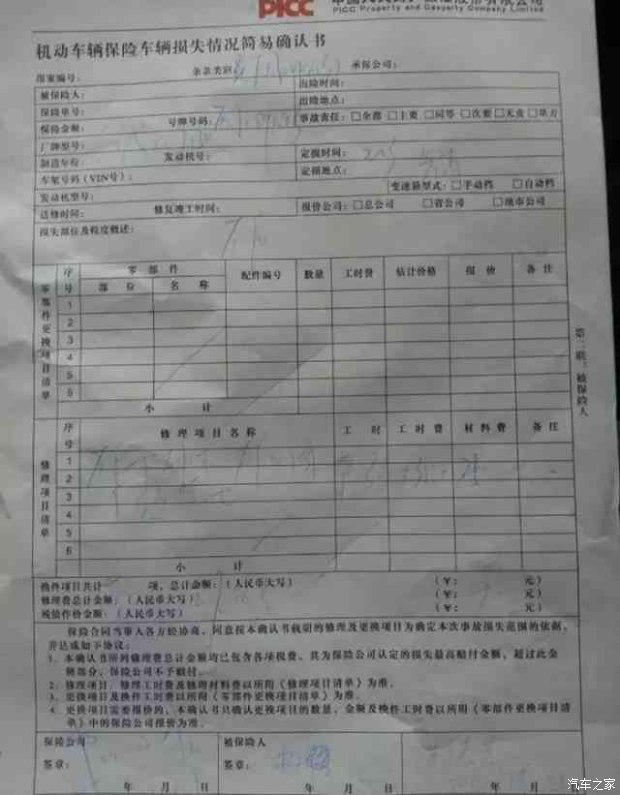 PICC
PICC Property and Casualty Company Limited
机动车辆保险车辆损失情况简易确认书
报案编号： 条款类别： 承保公司：
被保险人： 出险时间：
保险单号： 出险地点：
保险金额： 号牌号码： 事故责任：□全部 □主要 □同等 □次要 □无责 □单方
厂牌型号：
制造年份： 发动机号： 定损时间：
车架号码（VIN号）： 定损地点：
发动机型号： 变速箱型式：□手动档 □自动档
送修时间： 修复竣工时间： 报价公司：□总公司 □省公司 □地市公司
损失部位及程度概述：
零部件更换项目清单
序号 零部件 配件编号 数量 工时费 估计价格 报价 备注
部位 名称
1
2
3
4
5
6
小计
第二联：被保险人
修理项目清单
序号 修理项目名称 工时 工时费 材料费 备注
1
2
3
4
5
6
小计
换件项目共计 项，总计金额：（人民币大写） （￥： 元）
修理费总计金额：（人民币大写） （￥： 元）
残值作价金额：（人民币大写） （￥： 元）
保险合同当事人各方经协商，同意按本确认书载明的修理及更换项目为确定本次事故损失范围的依据，
并达成如下协议：
1、本确认书所列修理费总计金额均已包含各项税费，其为保险公司认定的损失最高赔付金额，超过此金
额部分，保险公司不予赔付。
2、修理项目、修理工时费及修理材料费以所附《修理项目清单》为准。
3、更换项目及换件工时费以所附《零部件更换项目清单》为准。
4、更换项目需要报价的，本确认书只确认更换项目的数量，金额及换件工时费以所附《零部件更换项目清
单》中的保险公司报价为准。
保险公司 被保险人
签章： 签章：
年 月 日 年 月 日 年 月 日
汽车之家